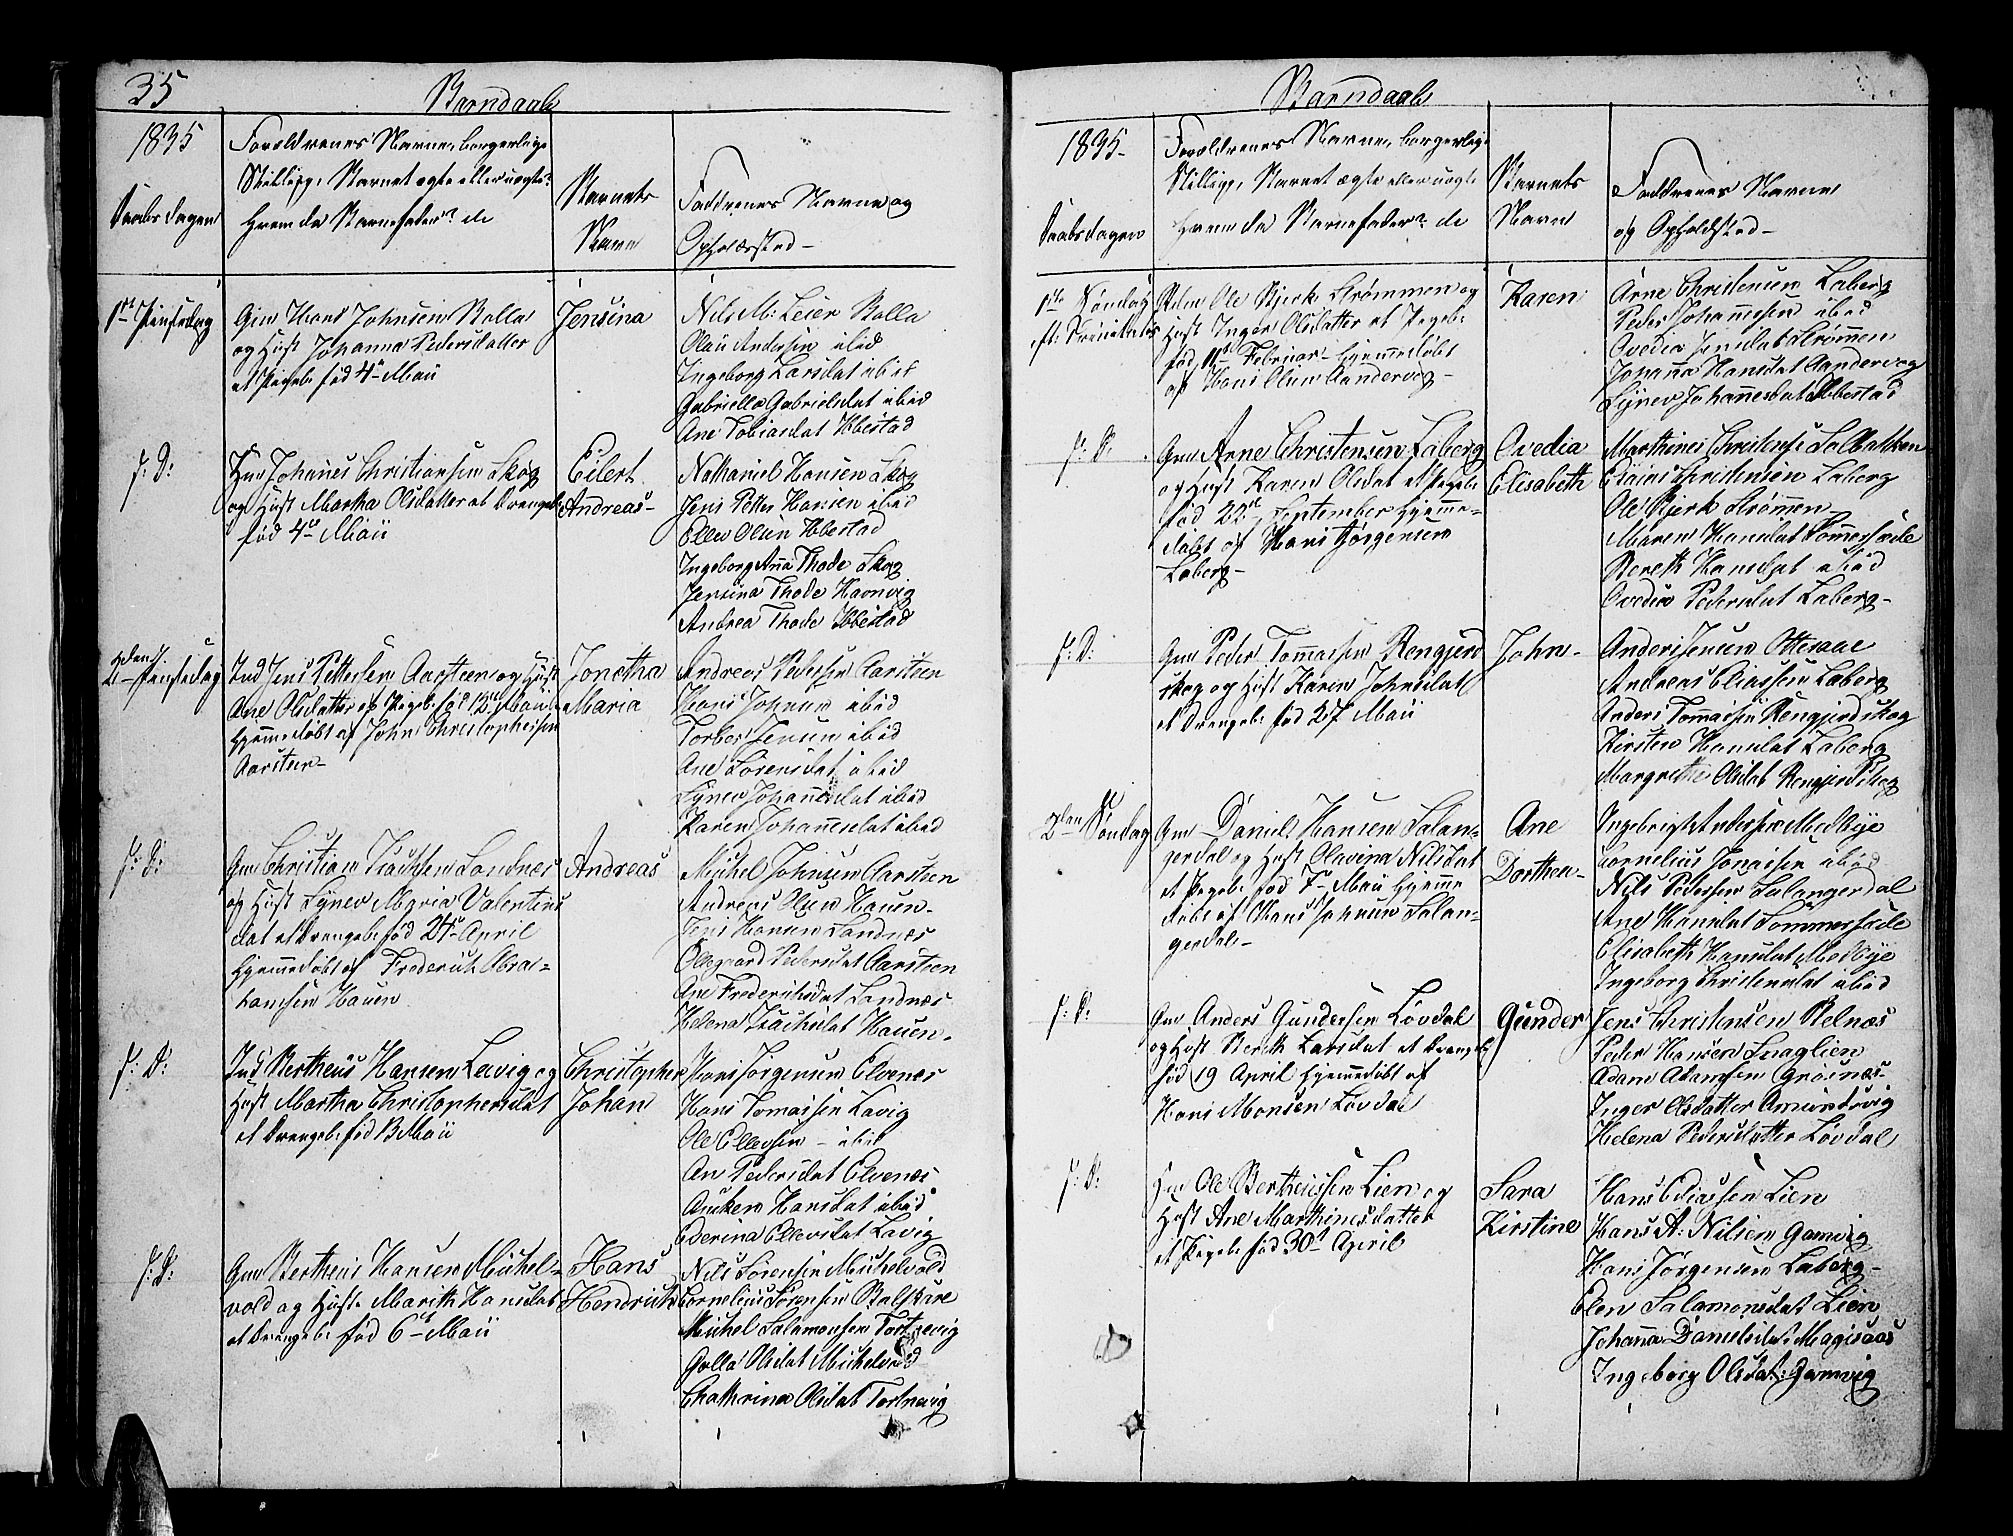 35
Barndaab
1835
Forældrenes Navne, borgerlige
Stilling, Barnet ægte eller uægte?
Hvem da Barnefader? de
Daabsdagen
Barnets
Navn
Faddrenes Navne og
Opholdssted –
1ste Pinsedag
Gm Hans Johnsen Balla
og Hust Johanna Pedersdatter
et Pigeb: fød 4de Maii
Jensina
Nils M: Leier Balla
Olau Andersen ibid
Ingeborg Larsdat ibid
Gabriella Gabrielsdat ibid
Ane Tobiasdat Ibbestad
s: D:
Johanes Christiansen Skog
og Hust Martha Olsdatter et Drengeb
fød 4de Maii
Eilert
Andreas –
Nathaniel Hansen Skog
Jens Petter Hansen ibid
Ellen Olsen Ibbestad
Ingeborg Ana Thode Skog
Jensina Thode Havnvig
Andrea Thode Ibbestad
2den Pinsedag
Ind Jens Pettersen Aarsteen og Hust
Ane Olsdatter et Pigeb: fød 12 Maii
hjemmedøbt af John Christophersen
Aarsteen –
Jonetha
Maria
Andreas Pedersen Aarsteen
Hans Johnsen ibid
Torber Jensen ibid
Ane Sørensdat ibid
Synev Johannesdat ibid
Karen Johannesdat ibid
s: D:
Gm Christian Isachsen Sandnes
og Hust Synev Maria Valentins
dat et Drengeb: fød 24de April
hjemmedøbt af Frederich Abra=
hamsen Hauen
Andreas
Michel Johnsen Aarsteen
Andreas Olsen Hauen –
Jens Hansen Sandnes
Ollegaard Pedersdat Aarsteen
Ane Frederichsdat Sandnes
Helena Isachsdat Hauen –
s: D:
Ind Bertheus Hansen Lavig og
Hust Martha Christophersdat
et Drengeb: fød Maii
Christopher
Johan
Hans Jørgensen Elvenes
Hans Tomassen Lavig
Ole Ellevsen – ibid
An Pedersdat Elvenes
Anken Hansdat ibid
Ederina Ellevsdat Lavig
s: D:
Gm Bertheus Hansen Michel=
vold og Hust. Marith Hansdat
et Drengeb: fød 6te Maii
Hans
Hendrich
Nils Sørensen Michelvold
Cornelius Sørensen
Michel Salamonsen
Olsdat Michelvold
Chatherina Olsdat
Barndaab
1835 –
Forældrenes Navne, borgerlig
Stilling, Barnet ægte eller uægte
Hvem da Barnefader? de
Daabsdagen
Barnets
Navn
Faddrenes Navne
og Opholdsted –
1ste Søndag
eft: Trinitatis
Ole Bjerk Strømmen og
Hust Inger Olsdatter et Pigeb:
fød 11te Februar – hjemmedøbt
af Hans Olsen Aandervog –
Karen
Arne Christensen Laberg
Peder Johannessen ibid
Ovedia Jensdat Strømmen
Johanna Hansdat Aandervog
Synev Johannesdat Ibbestad
s: D:
Gm Arne Christensen Laberg
og Hust Karen Olsdat et Pigeb:
fød 22de September hjemme=
døbt af Hans Jørgensen
Laberg –
Ovedia
Elisabeth
Marthines Christensen
Esaias Christensen Laberg
Ole Bjerk Strømmen
Maren Hansdat Sømmersæde
Bereth Hansdat ibid
Ovedia Pedersdat Laberg –
s: D:
Gm Peder Tomassen Rengjerd
skog og Hust Karen Johnsdat
et Drengeb: fød Maii
John –
Anders Jensen Otteraae
Andreas Eliassen Laberg
Anders Tomassen Rengjerdskog
Kirsten Hansdat Laberg
Margrethe Olsdat Rengjerdskog
2den Søndag
Gm Daniel Hansen Salan=
gerdal og Hust Olavina Nilsdat
et Pigeb: fød 7de Maii hjemme
døbt af Hans Johnsen Salan=
gerdal –
Ane
Dorthea –
Ingebrigt Andersen Medbye
Cornelius Jonassen ibid
Nils Pedersen Salangerdal
Ane Hansdat Sømmersæde
Elisabeth Hansdat Medbye
Ingeborg Christensdat ibid
s: D:
Gm Anders Gundersen Løvdal
og Hust Bereth Larsdat et Drengeb
fød 19 April hjemmedøbt af
Hans Monsen Løvdal
Gunder
Jens Christensen Belnæs
Peder Hansen Snaglien
Adam Adamsen Grøsnæs –
Inger Olsdatter Amundsvig
Helena Pedersdatter Løvdal
s: D:
Ole Bertheussen Lien og
Hust Ane Marthinesdatter
et Pigeb: fød 30te April
Sara
Kirstine
Hans Ediassen Lien
Hans A: Nilsen Gamvig
Hans Jørgensen Laberg –
Elen Salamonsdat Lien
Johanna Danielsdat: Magisaas
Ingeborg Olsdat: Gamvig